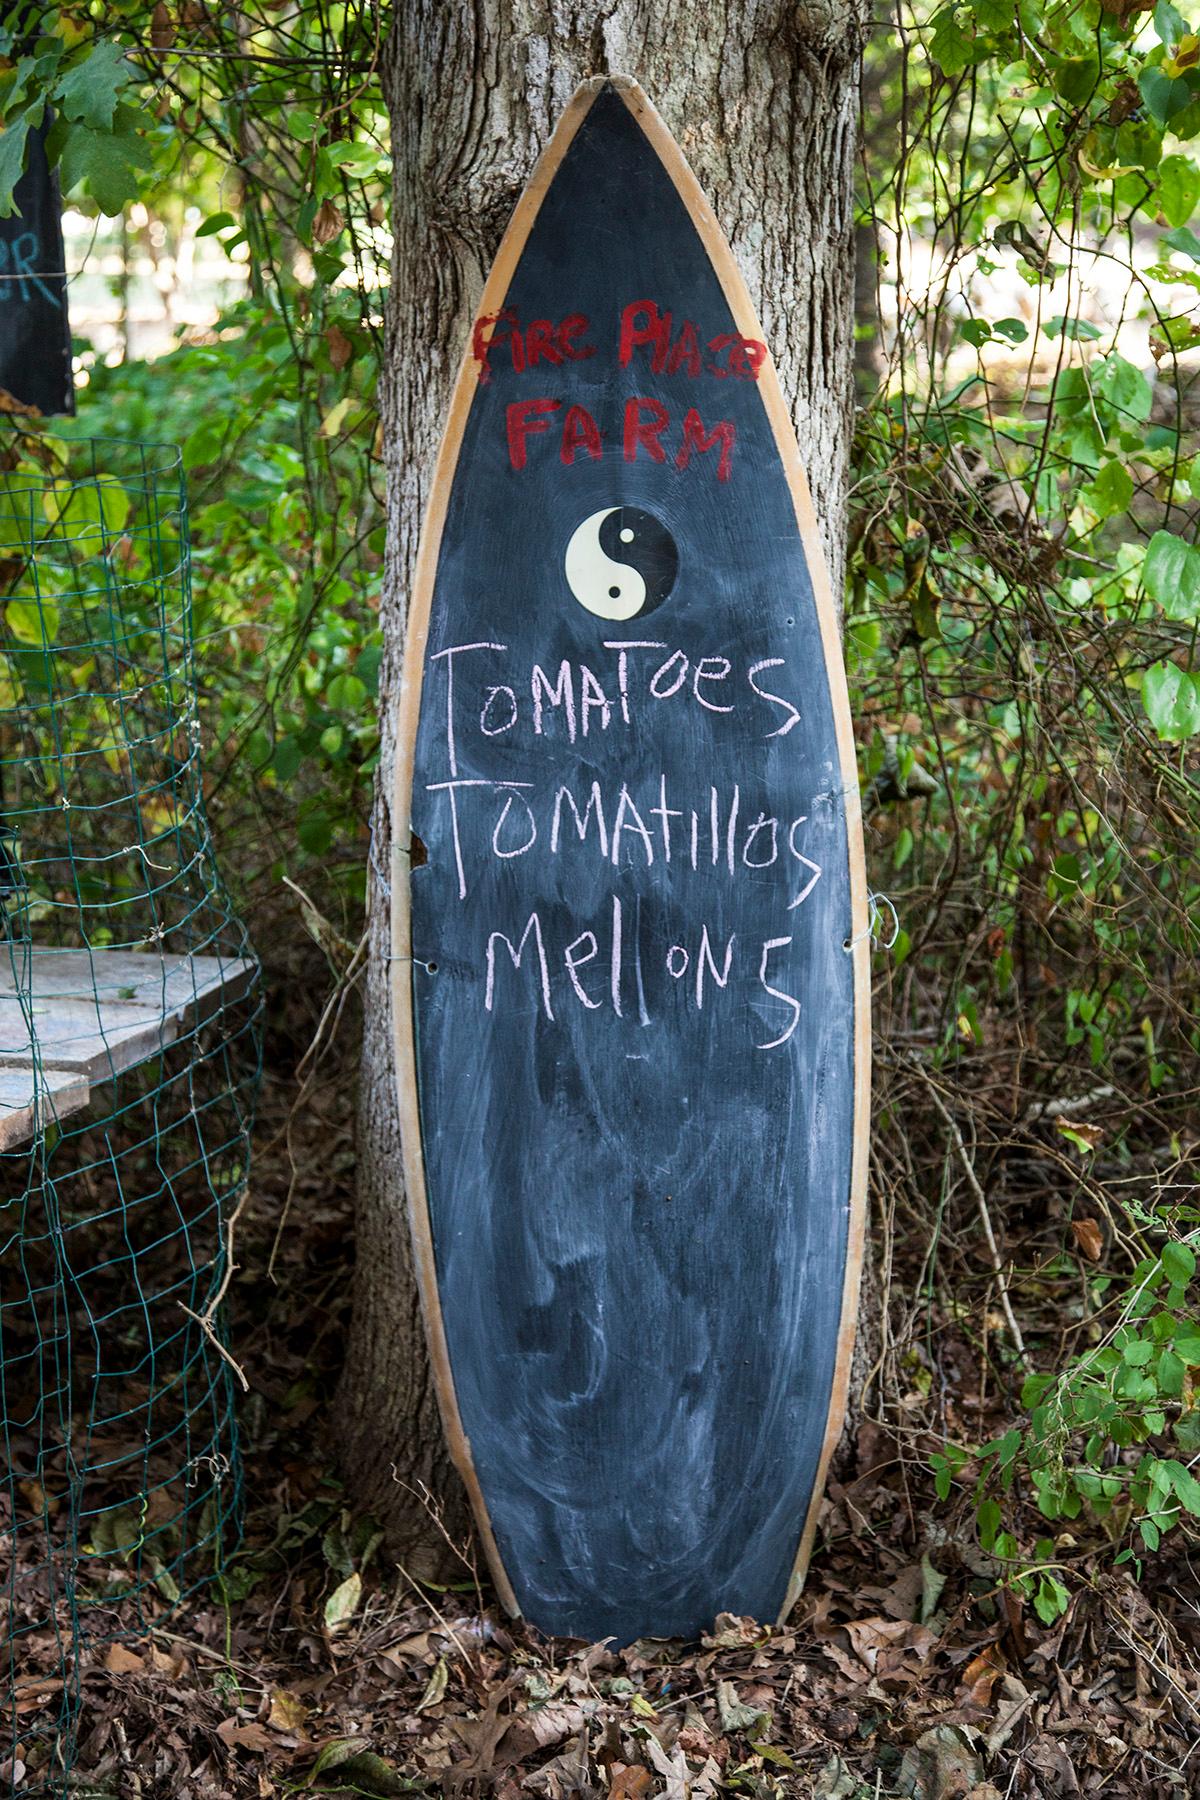 Fire Place
FARM
TOMATOES
TOMAtillos
Mellons